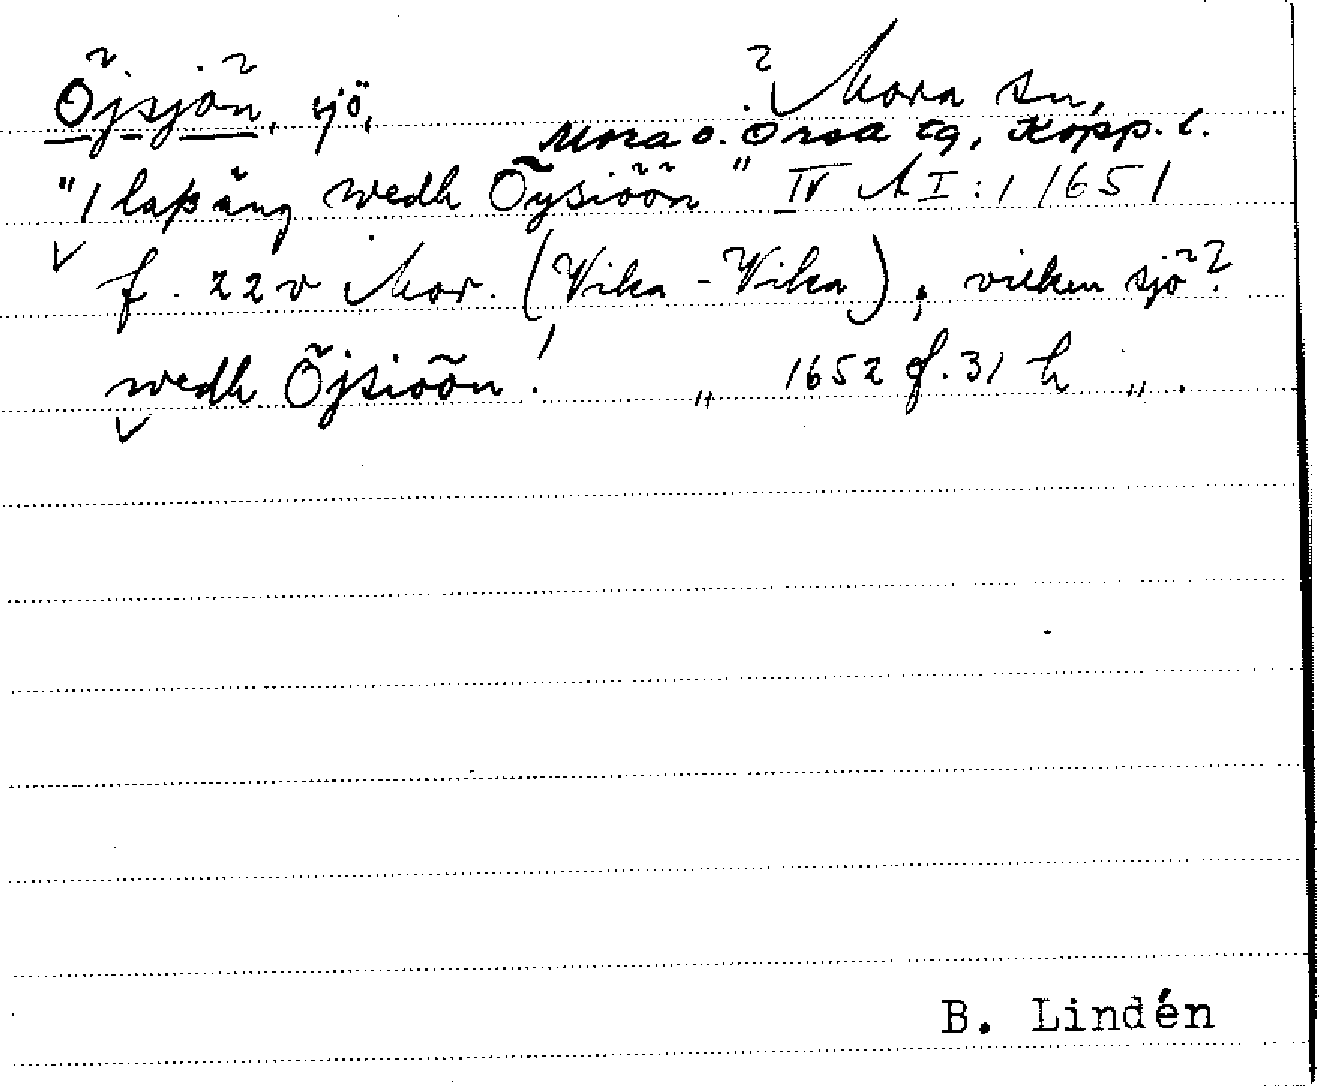 Öjsjön, sjö, ? Mora sn,
Mora o. Orsa tg, Kopp. l.
"1 laß äng wedh Öysiöön" IV A I:1 1651
f. 22 v Mor. (Vika - Vika), vilken sjö?
wedh Öjsiöön! „ 1652 f. 31 h „ .
B. Lindén